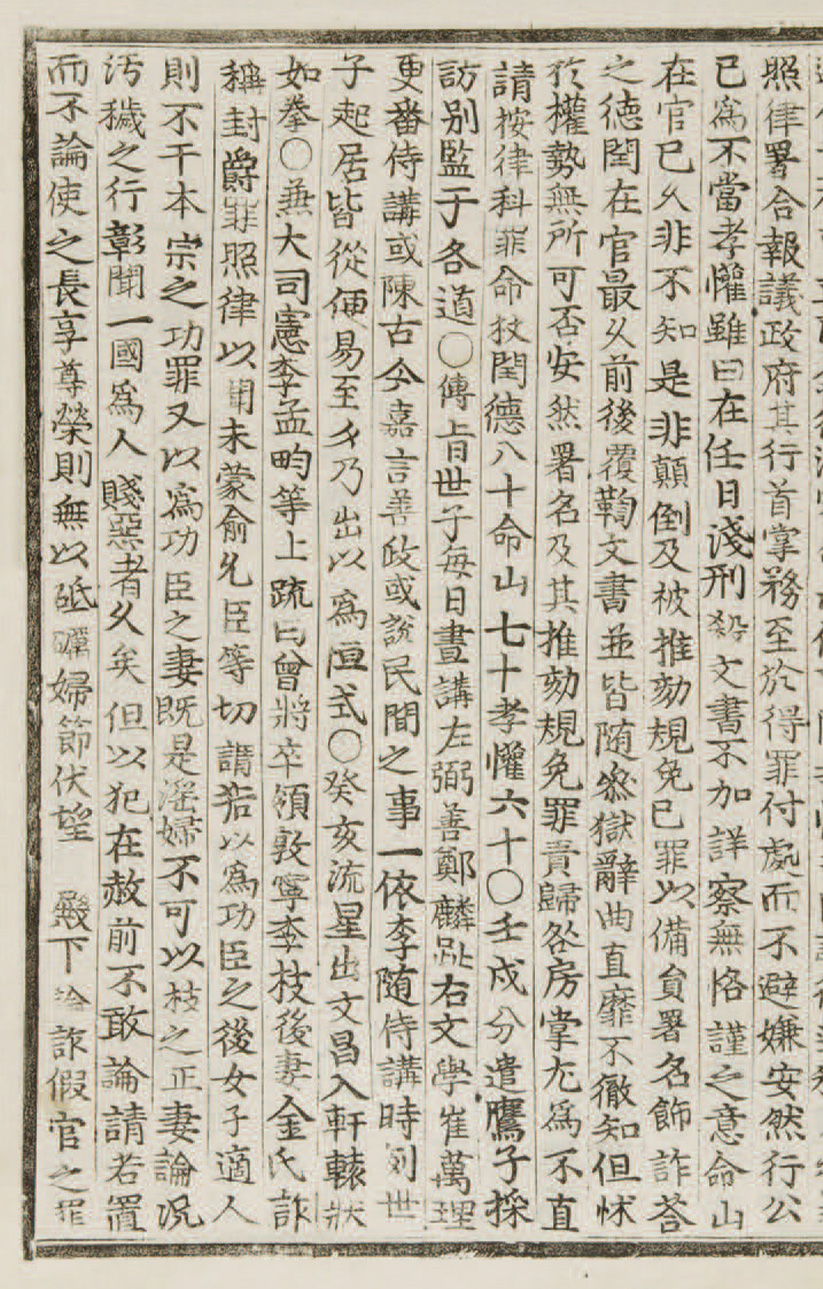 照律署合報議政府其行首掌務至於得罪付處而不避嫌安然行公
已爲不當孝懽雖曰在任日淺刑殺文書不加詳察無恪謹之意命山
在官已久非不知是非顚倒及被推劾規免已罪以備員署名飾詐答
之德閏在官最久前後覆鞫文書並皆随叅獄辭曲直靡不徹知但怵
於權勢無所可否安然署名及其推劾規免罪責歸咎房掌尤爲不直
請按律科罪命杖閏德八十命山七十孝懽六十○壬戌分遣鷹子採
訪别監于各道○傳旨世子每日晝講左弼善鄭麟趾右文學崔萬理
更番侍講或陳古今嘉言善政或說民間之事一依李随侍講時例世
子起居皆從便易至夕乃出以爲恒式○癸亥流星出文昌入軒轅狀
如拳○兼大司憲李孟畇等上疏曰曾將卒領敦寧李枝後妻金氏詐
稱封爵罪照律以聞未蒙俞允臣等切謂若以爲功臣之後女子適人
則不干本宗之功罪又以爲功臣之妻旣是滛婦不可以枝之正妻論况
汚穢之行彰聞一國爲人賤惡者久矣但以犯在赦前不敢論請若置
而不論使之長享尊榮則無以砥礪婦節伏望 殿下論詐假官之罪